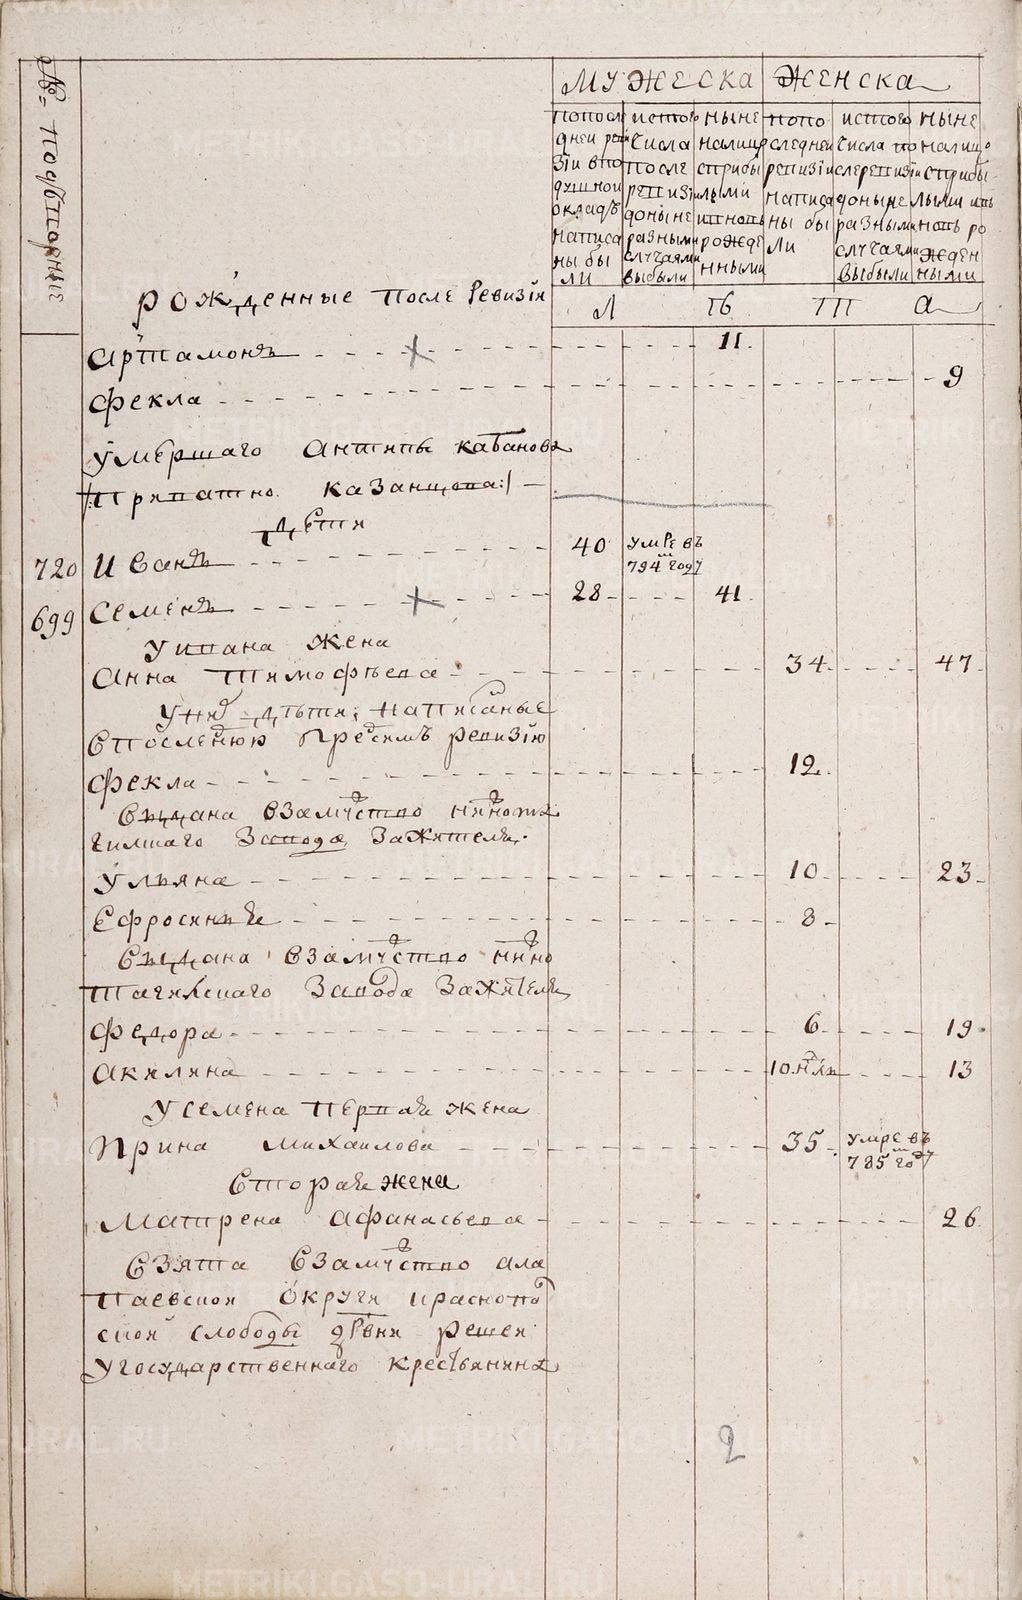 № подворные
мужеска женска
по последней ревизiи в подушной окладъ написаны были
ис того числа после ревизiи доныне разными случаями выбыли
ныне налицо с прибылыми и вновь рожденными
по последней ревизiи написаны были
ис того числа после ревизiи доныне разными случаями выбыли
ныне налицо с прибылыми и вновь рожденными
рожденные после ревизiи
л ѣ т а
Артамонъ 11
Фекла 9
умершаго Антипы Кабанова
/: Приватно Казанцова :/
дѣти
720 Иванъ 40 умре въ 794 году
699 Семенъ 28 41
у Ивана жена
Анна Тимофѣева 34 47
у них дѣти написаные
в последнюю пред симъ ревизiю
Фекла 12
выдана в замужство нижнота
гилшаго завода за жителя
Ульяна 10 23
Ефросинья 8
выдана в замужство нижно
тагильскаго завода за жителя
Федора 6 19
Акилина 10 н 13
у Семена первая жена
Ирина Михаилова 35 умре въ 785 году
вторая жена
Матрена Афанасьева 26
взята в замужство ала
паевской округи краснопо
ской слободы дрвни Решеи
у государственнаго крестьянина
2
METRIKI.GASO-URAL.RU